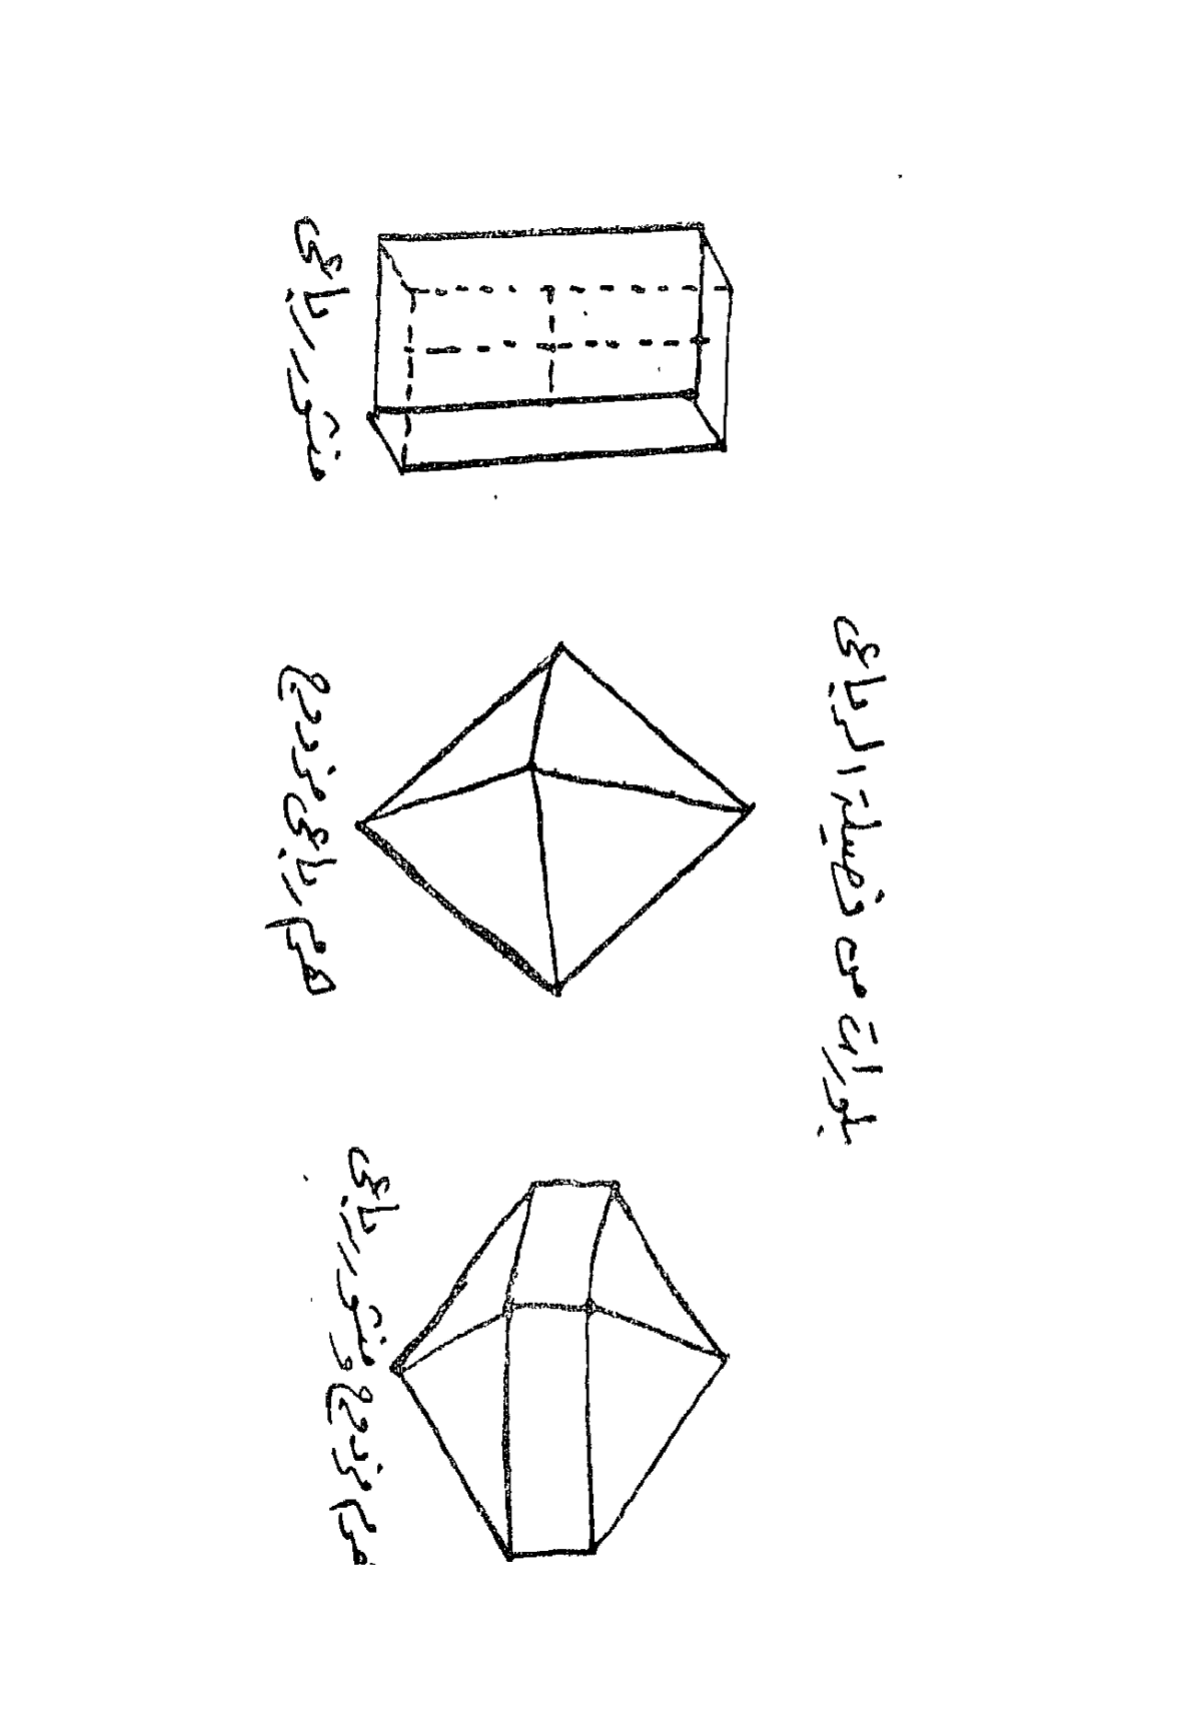 بلورات من فصيلة الرباعى
هرم مزدوج و منشور رباعى
هرم رباعى مزدوج
منشور رباعى